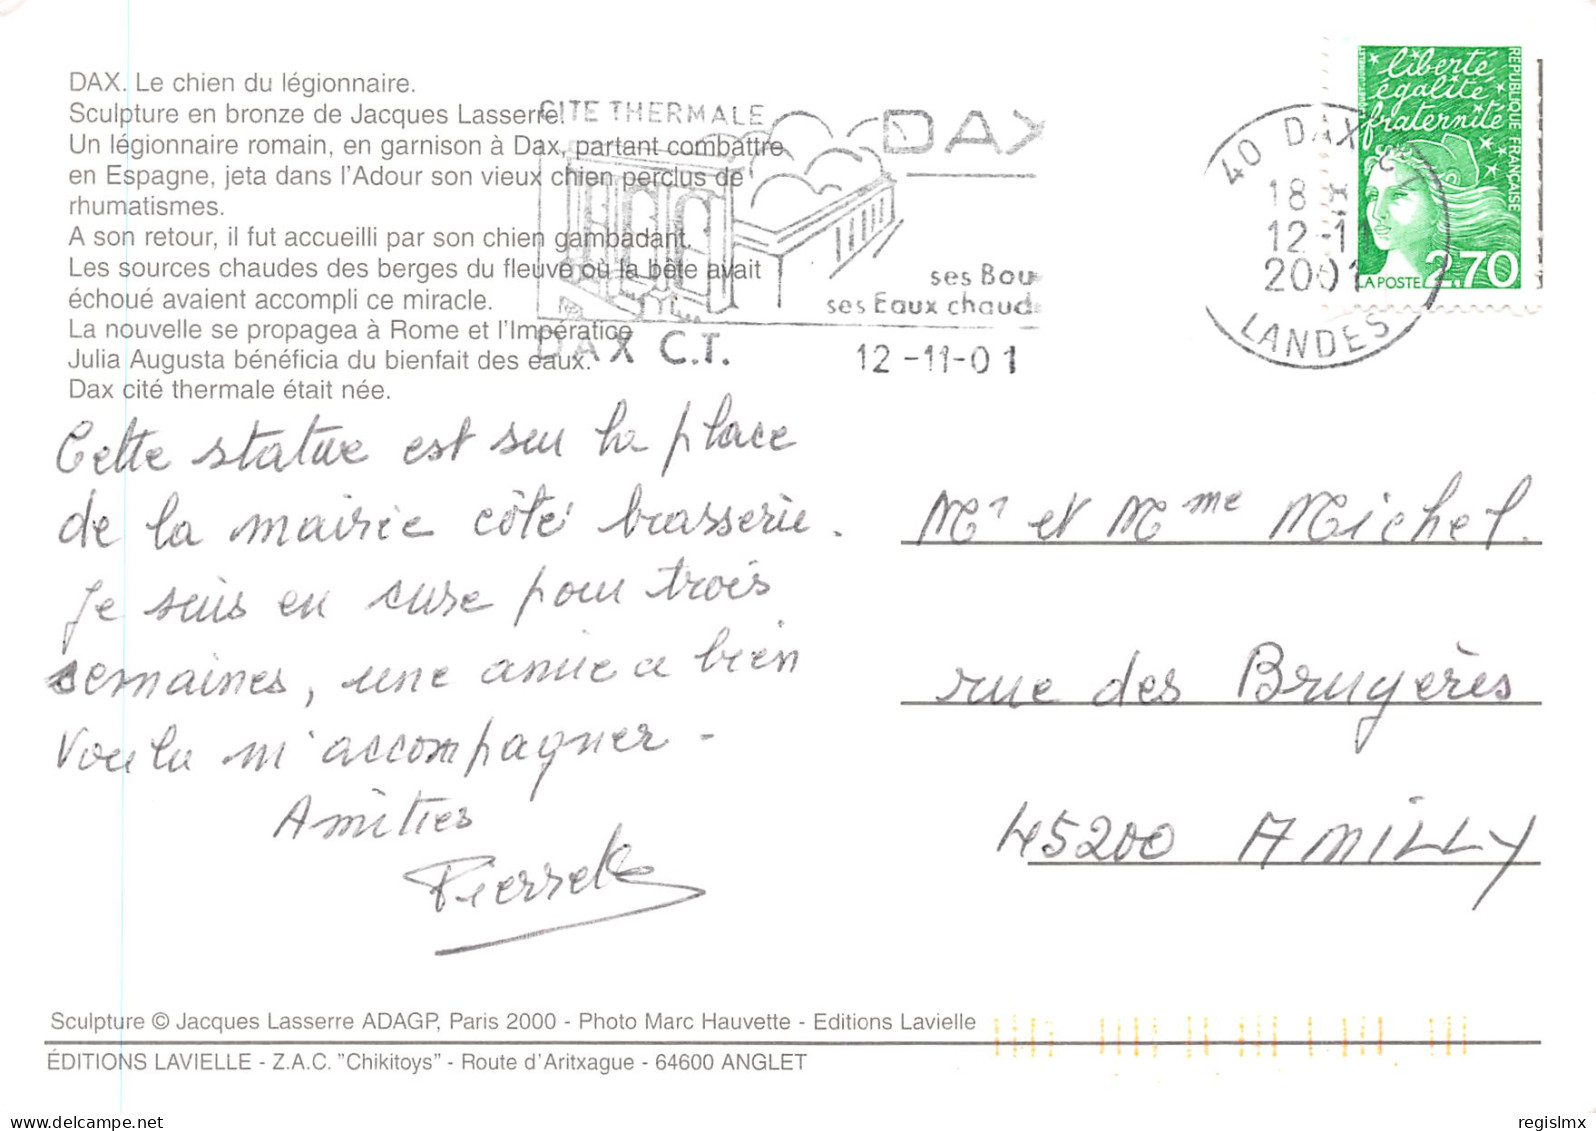 DAX. Le chien du légionnaire.
Sculpture en bronze de Jacques Lasserre.
Un légionnaire romain, en garnison à Dax, partant combattre
en Espagne, jeta dans l'Adour son vieux chien perclus de
rhumatismes.
A son retour, il fut accueilli par son chien gambadant.
Les sources chaudes des berges du fleuve où la bête avait
échoué avaient accompli ce miracle.
La nouvelle se propagea à Rome et l'Impératice
Julia Augusta bénéficia du bienfait des eaux.
Dax cité thermale était née.
CITE THERMALE
DAX
ses Bou
ses Eaux chaud
DAX C.T.
12-11-01
40 DAX C
18 H
12-11
2001
LANDES
liberté
égalité
fraternité
REPUBLIQUE FRANÇAISE
LA POSTE 2.70
Cette statue est sur la place
de la mairie côté brasserie.
Je suis en cure pour trois
semaines, une amie a bien
voulu m'accompagner -
Amitiés
Pierrette
Mr et Mme Michel.
rue des Bruyères
45200 AMILLY
Sculpture © Jacques Lasserre ADAGP, Paris 2000 - Photo Marc Hauvette - Editions Lavielle
ÉDITIONS LAVIELLE - Z.A.C. "Chikitoys" - Route d'Aritxague - 64600 ANGLET
delcampe.net
regislmx